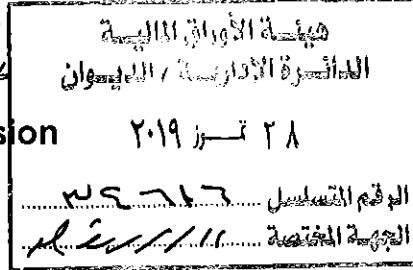 هيئة الأوراق المالية
الدائرة الإدارية / الديوان
sion
٢٨ تموز ٢٠١٩
الرقم المتسلسل
الجهة المختصة